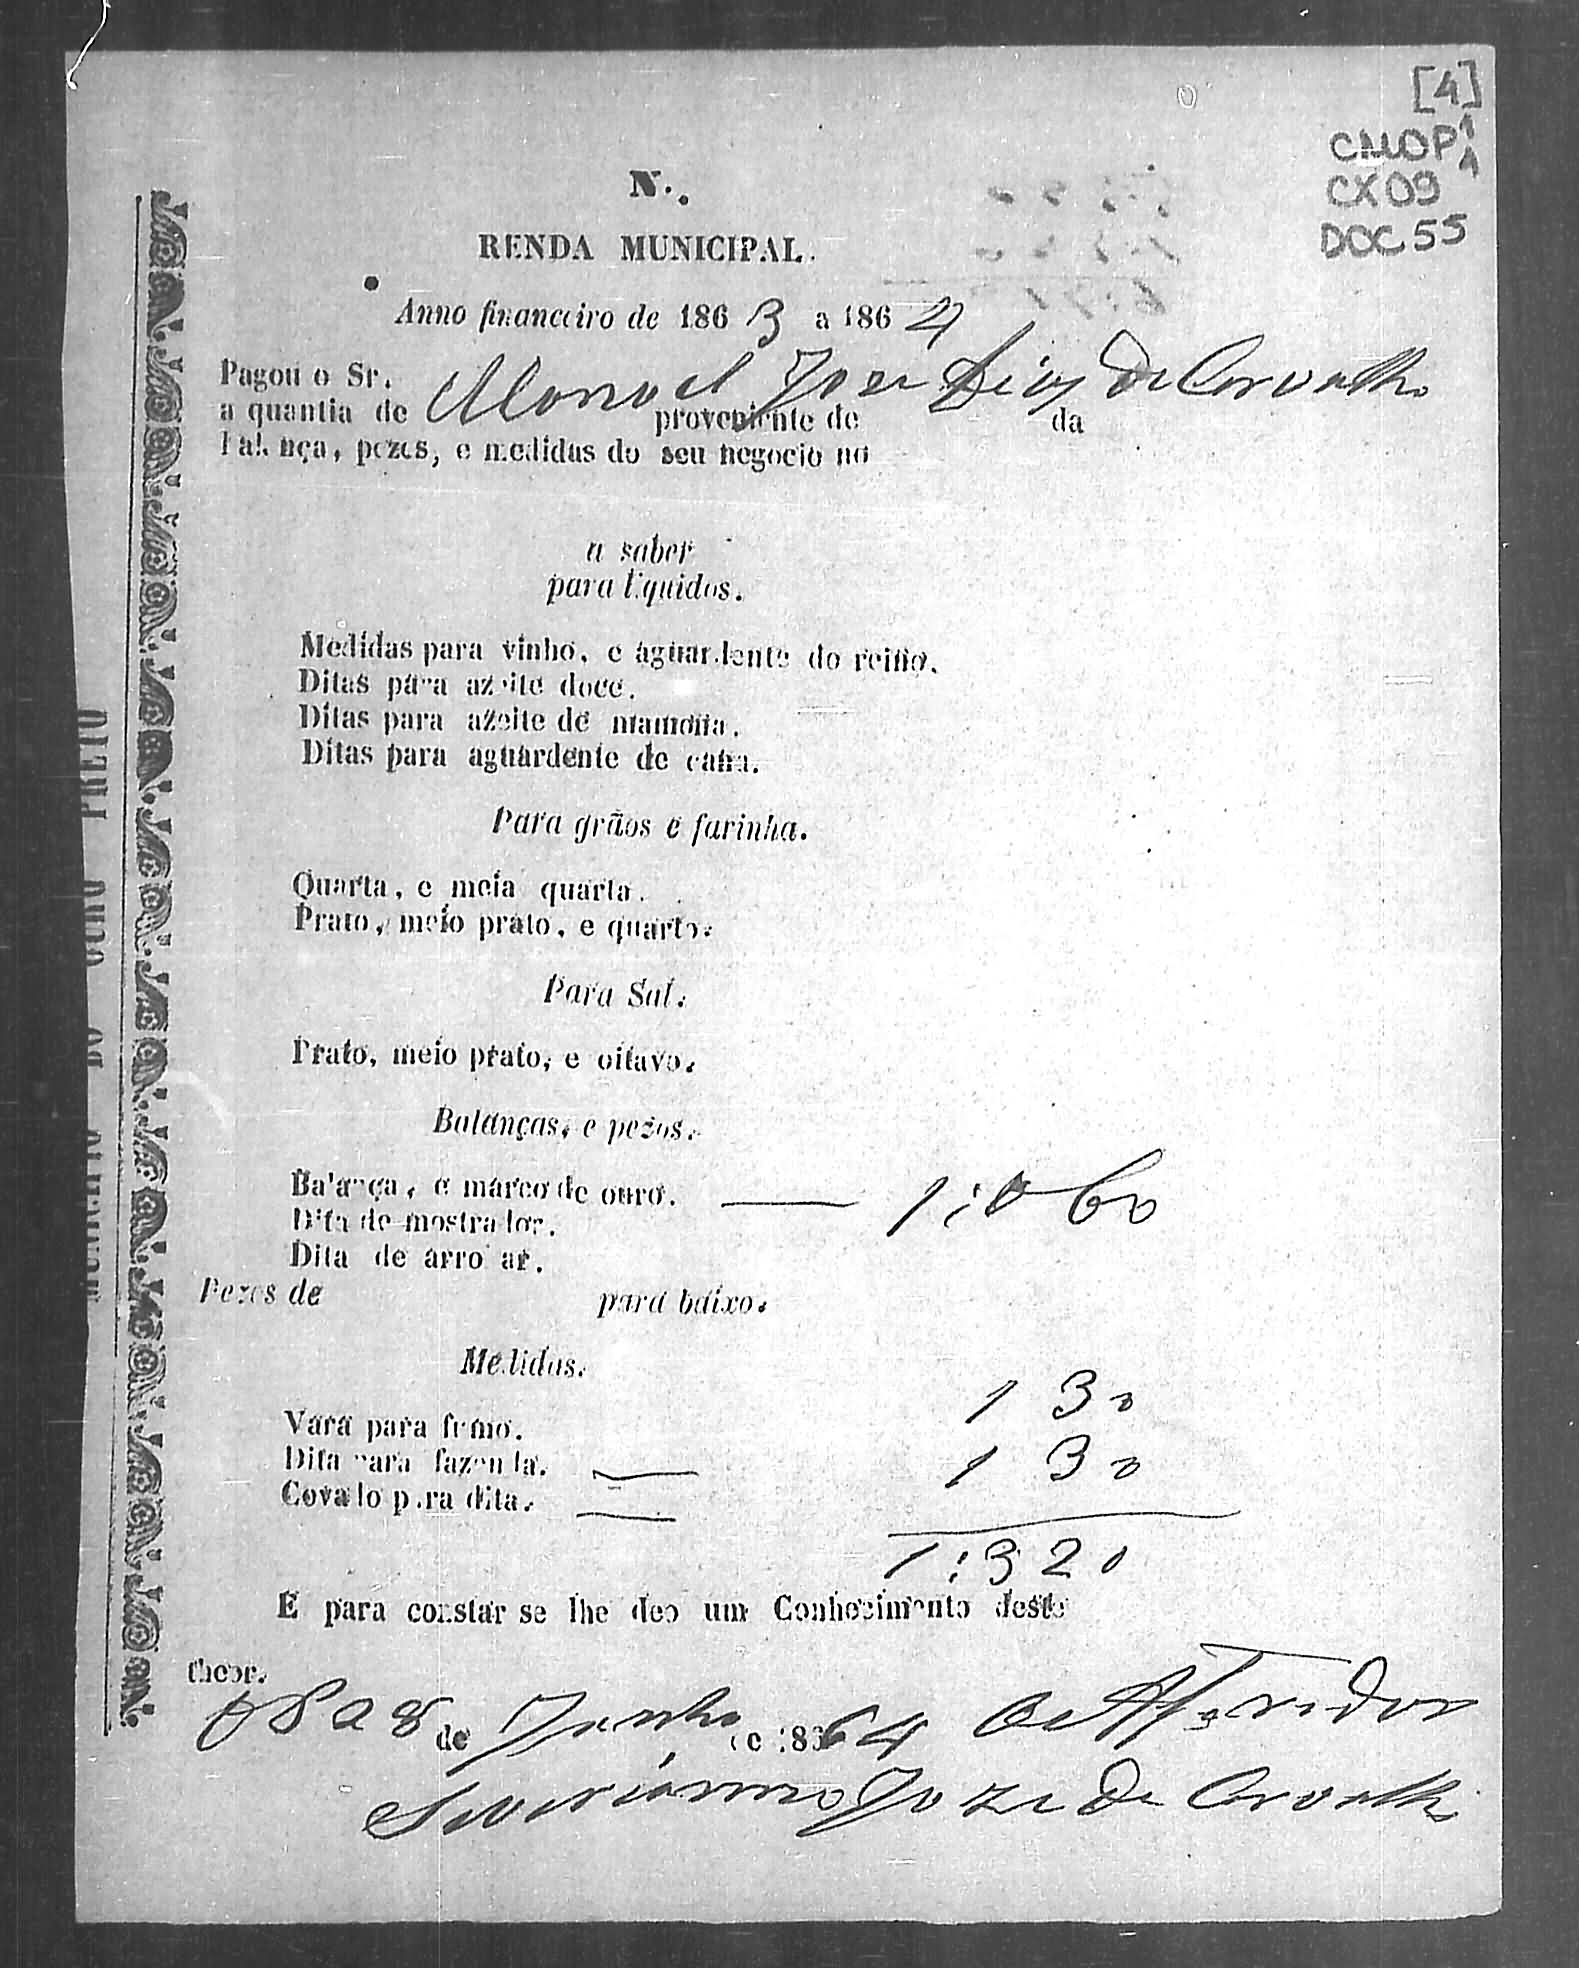 [4]
CMOP 1
1
CX 09
DOC. 55
N.
RENDA MUNICIPAL.
Anno financeiro de 1863 a 1864
Pagou o Sr. Manoel Joze Dias de Carvalho
a quantia de proveniente de da
balança, pezos, e medidas do seu negocio no
a saber
para liquidos.
Medidas para vinho, e aguardente do reino.
Ditas para azeite doce.
Ditas para azeite de mamona.
Ditas para aguardente de cana.
Para grãos e farinha.
Quarta, e meia quarta.
Prato, meio prato, e quarto.
Para Sal.
Prato, meio prato, e oitavo.
Balanças, e pezos.
Balança, e marco de ouro. — 1:060
Dita de mostrador.
Dita de arrobar.
Pezos de para baixo.
Medidas.
Vara para fumo. 130
Dita para fazenda. — 130
Covado para dita. —
1:320
E para constar se lhe deo um Conhecimento deste
theor.
8 de Junho de 1864 O Afferidor
Severianno Joze de Carvalho
MUNICIPIO DO OURO PRETO